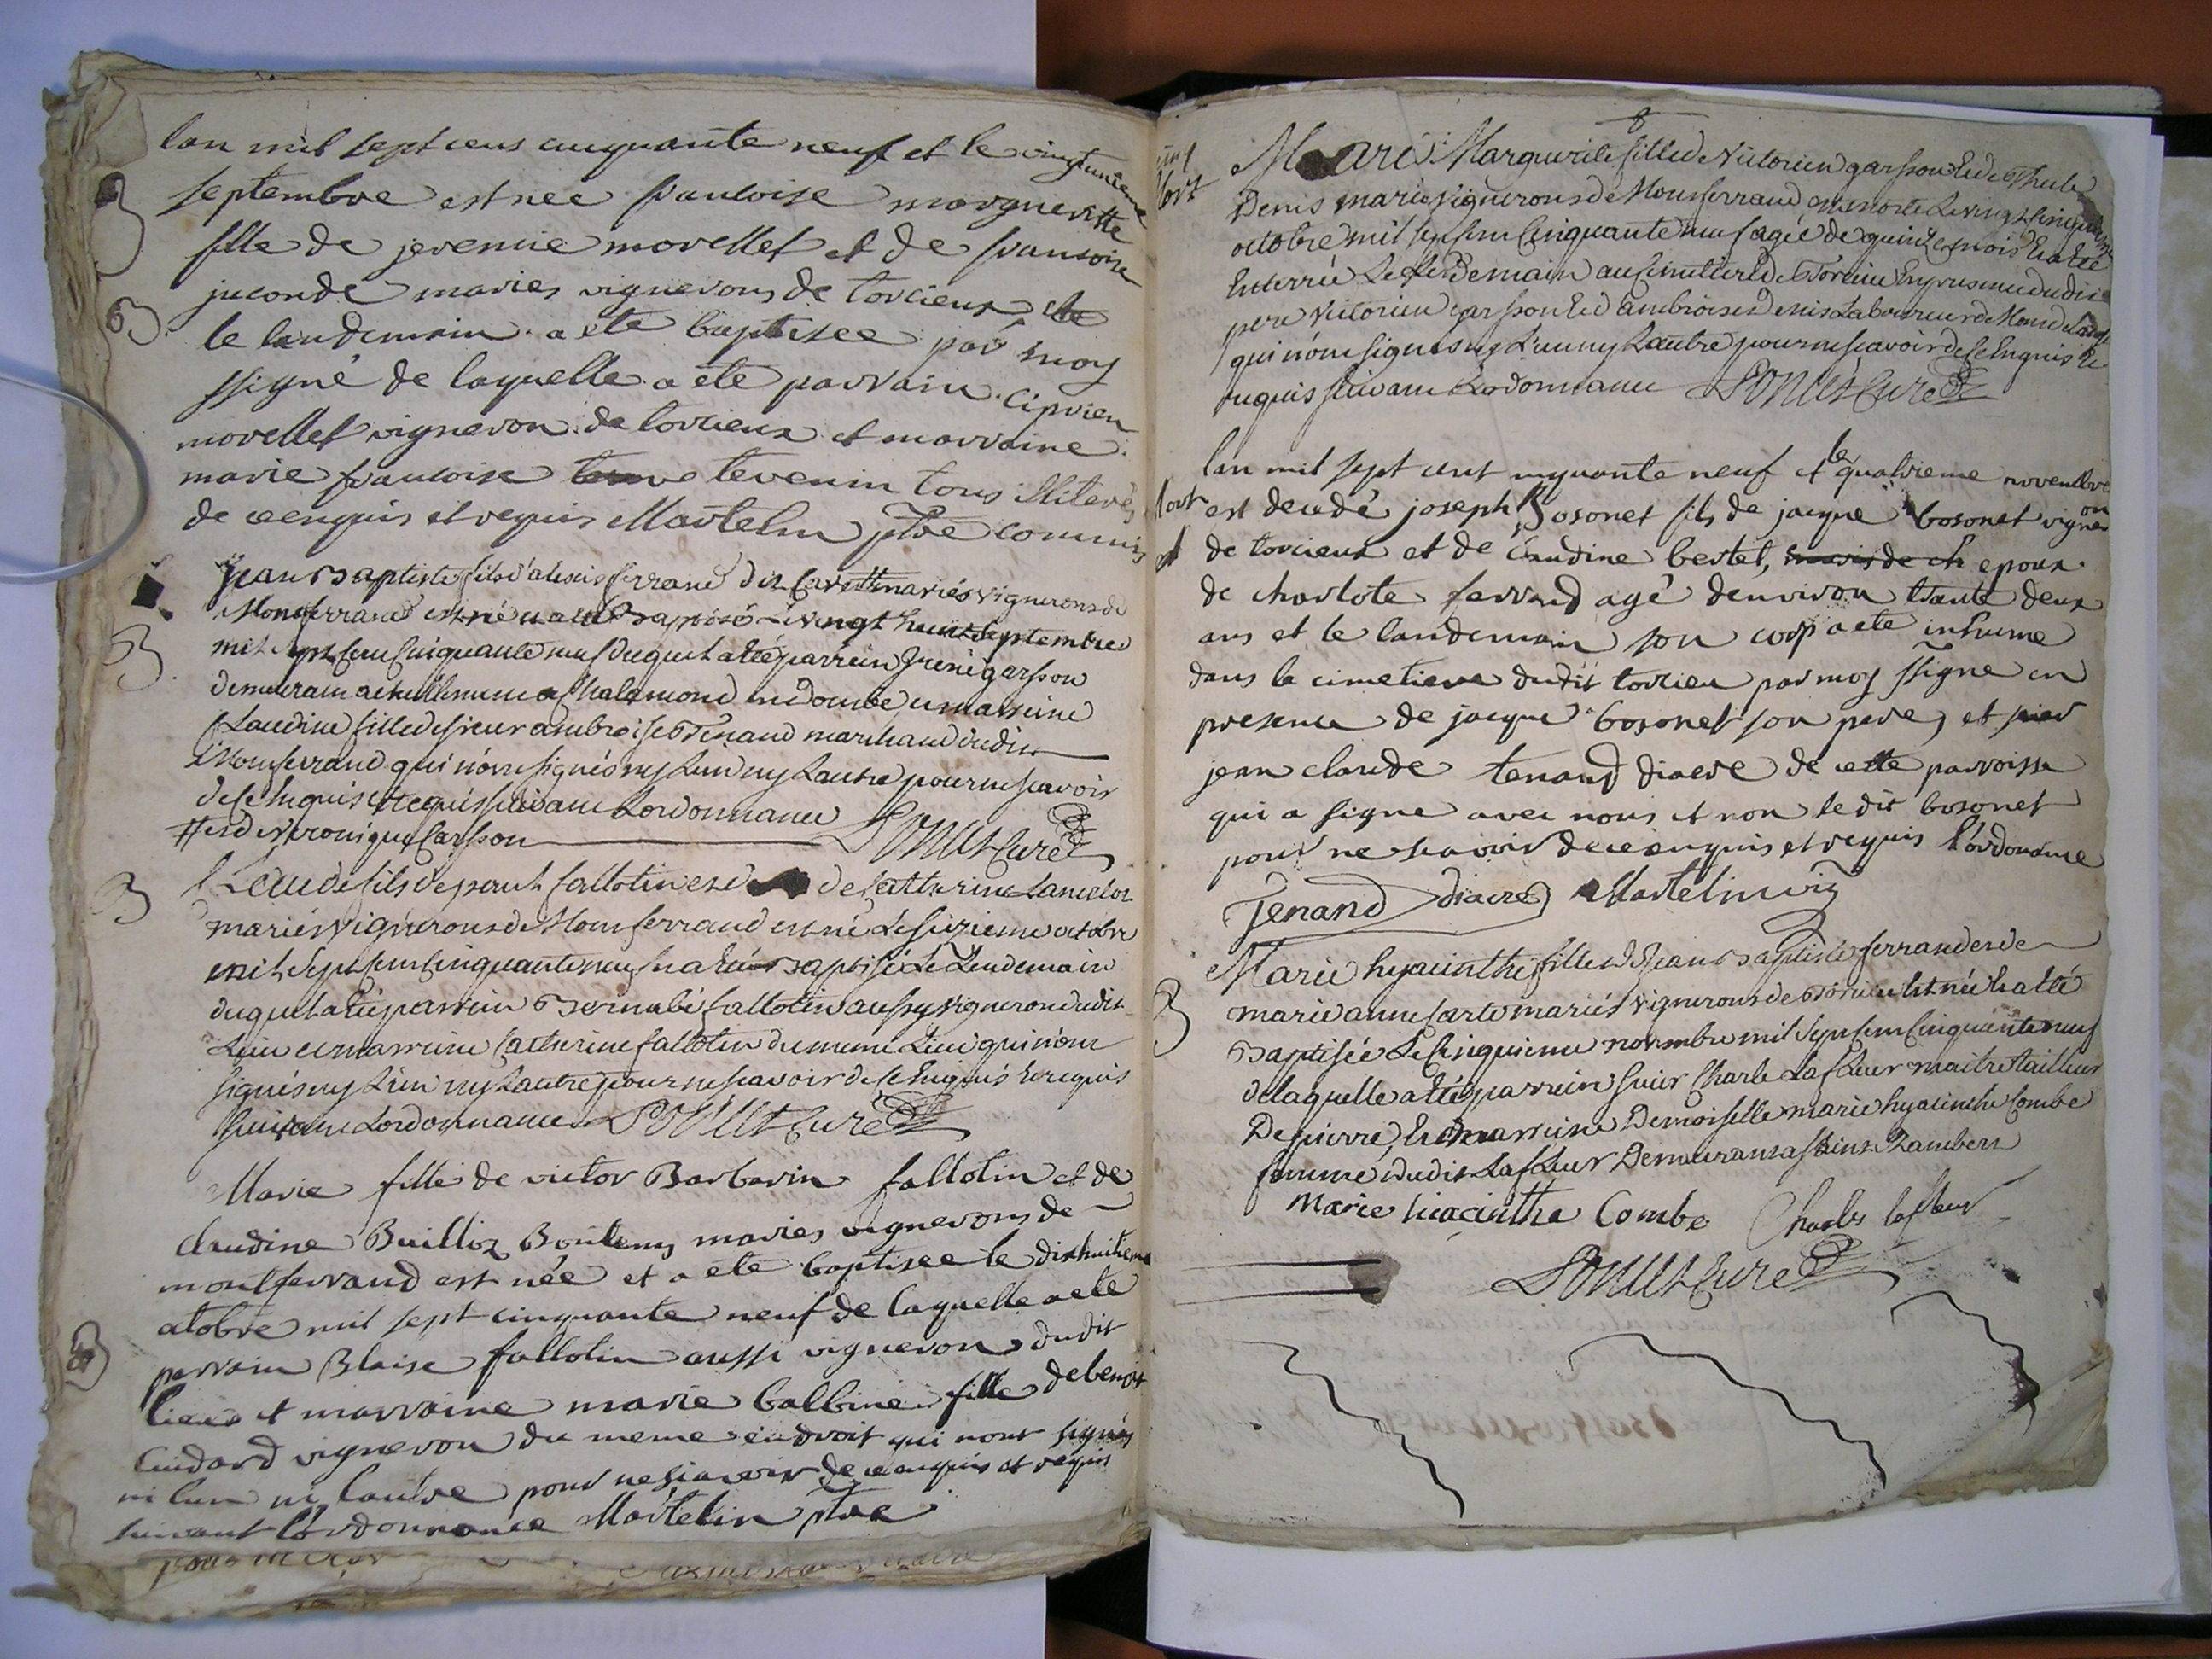 lan mil sept cens cinquante neuf et le vingtunieme
septembre est nee francoise margueritte
fille de jeremie morellet et de francoise
juconde maries vignerons de torcieux
le landemain a ete baptisee par moy
ssigné de laquelle a ete parrain ciprien
morellet vigneron de torcieux et marraine
marie francoise tevenin tous illiterés
de ce enquis et requis Martelin ptre commis
B
B
Jean Baptiste fils d'alexis ferrand dit mariés vignerons de
Monferrand est né Baptisé Le vingt huit Septembre
mil Sept Cens Cinquante neuf duquel a été parrein garsson
demeurant a Chalamond en dombe et marreine
Claudine fille de sieur ambroise Tenand marchand dudit
Monferrand qui n'ont signés ny Lun ny Lautre pour ne scavoir
de ce Enquis et Requis suivant Lordonnance
et de veronique Carsson Curé
B
Claude fils de fallotin et de Catherine Lancelot
mariés Vignerons de Monferrand est né Le seizieme octobre
mil Sept Cens Cinquante neuf Baptisé Le Lendemain
duquel a été parrein Bernabé fallotin aussy vigneron dudit
Lieu et marreine Catherine fallotin du meme Lieu qui n'ont
signés ny Lun ny Lautre pour ne scavoir de ce Enquis Et requis
suivant Lordonnance Curé
B
Marie fille de victor Barbarin fallotin et de
claudine maries vignerons de
montferrand est née et a ete baptisee le dixhuitieme
octobre mil sept cinquante neuf de laquelle a ete
parrain Blaise fallotin aussi vigneron dudit
lieu et marraine marie balbine fille de benoit
cudard vigneron du meme endroit qui nont signés
ni lun ni lautre pour ne sçavoir de ce enquis et requis
suivant l'ordonnance Martelin ptre
B
8
Mort
Marie Marguerite fille de Victorien garsson Et de
Denis mariés vignerons de Monferrand est morte Le vingt Cinquieme
octobre mil sept Cens Cinquante neuf agée de quinze mois Et a été
Enterrée Le Lendemain au Cimetiere de Torcieu En presence dudit
pere Victorien garsson Et d'ambroise denis Laboureur
qui n'ont signés ny L'un ny Lautre pour ne scavoir de ce Enquis Et
requis suivant Lordonnance Curé
lan mil sept cent cinquante neuf et le quatrieme novembre
Mort est decedé joseph Bosonet fils de jacque bosonet vigneron
de torcieux et de claudine bertet, epoux
de charlote ferrand agé denviron trante deux
ans et le landemain son corp a ete inhume
dans le cimetiere dudit torcieu par moy ssigne en
presence de jacque bosonet son pere, et
jean claude tenand diacre de cette parroisse
qui a signe avec nous et non ledit bosonet
pour ne scavoir de ce enquis et requis l'ordonance
Tenand diacre Martelin
B
Marie hyacinthe fille de Jean Baptiste ferrand et de
marie anne mariés Vignerons de Torcieu Est née Et a été
Baptisée Le Cinquieme novembre mil Sept Cens Cinquante neuf
de laquelle a été parrein sieur Charle Lafleur maitre tailleur
De pierre, Et marreine Demoiselle marie hyacinthe Combe
femme dudit Lafleur Demeurans a Saint Rambert
Marie hiacintha Combe Charles lafleur
Curé